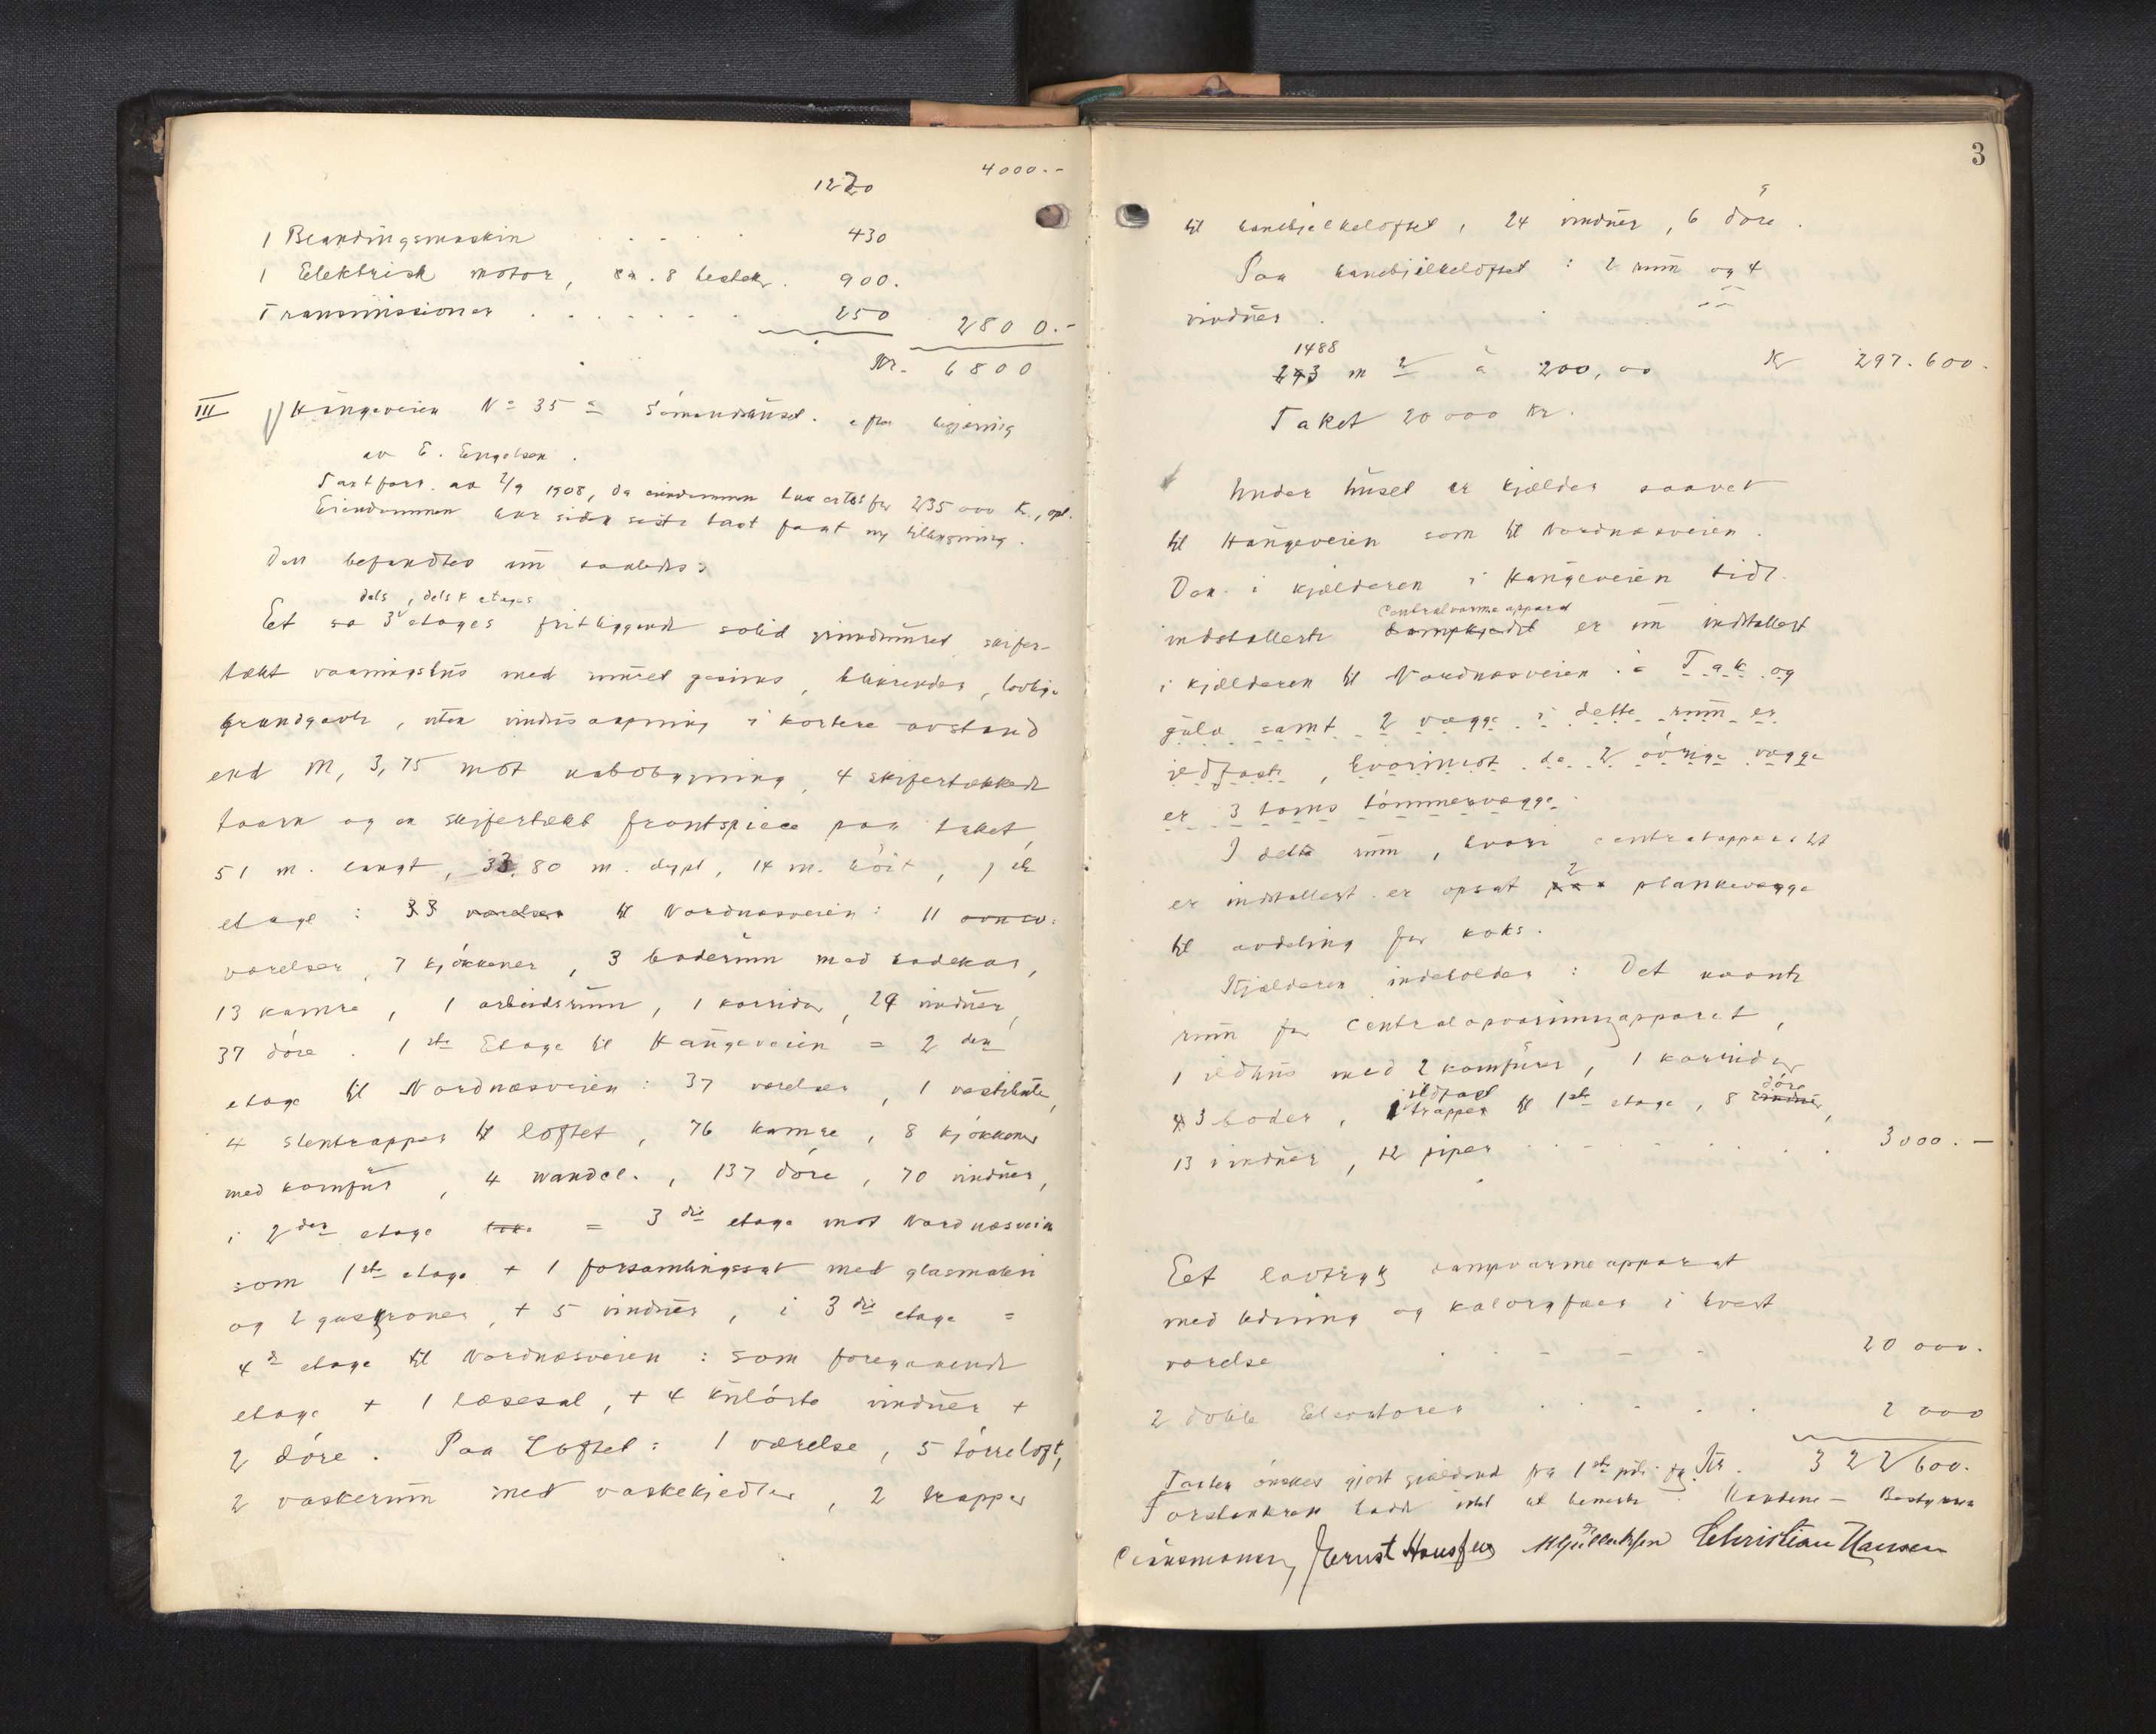 4000.-
1220
1 Blandingsmaskin . . . . 430
1 Elektrisk motor, ca. 8 hestek. 900.
Transmissioner . . . . . . . 250 2800.-
Kr. 6800
III Haugeveien No 35 = Sømandshuset. efter begjæring
av E. Engelsen.
Taxtforr. av 2/9 1908, da eiendommen blev ertat for 235 000 Kr., opl.
Eiendommen har siden siste taxt faat ny tilbygning.
Den befandtes nu saaledes:
dels, dels 4 etages
Et sa 3 etages fritliggende solid grundmuret skifer-
tækt vaaningshus med muret gesims, blikrender, lovlige
brandgavle, uten vindusaapning i kortere avstand
end M. 3,75 mot nabobygning, 4 skifertækkede
taarn og en skifertækt frontspiece paa taket,
51 m. langt, 33.80 m. dypt, 14 m. høit, 1ste
etage: 33 værelser til Nordnæsveien: 11
værelser, 7 kjøkkener, 3 baderum med badekar,
13 kamre, 1 arbeidsrum, 1 korridor, 29 vinduer,
37 døre. 1ste Etage til Haugeveien = 2den
etage til Nordnæsveien: 37 værelser, 1 vestibule,
4 stentrapper til loftet, 76 kamre, 8 kjøkkener
med komfur, 4 wandcl., 137 døre, 70 vinduer,
i 2den etage = 3die etage mot Nordnæsveien
som 1ste etage + 1 forsamlingssal med glasmaleri
og 2 gaskroner, + 5 vinduer, i 3die etage =
4de etage til Nordnæsveien: som foregaaende
etage + 1 læsesal, + 4 kulørte vinduer +
2 døre. Paa Loftet: 1 værelse, 5 tørreloft,
2 vaskerum med vaskekjedler, 2 trapper
3
til hanebjelkeloftet, 24 vinduer, 6 døre.
Paa hanebjelkeloftet: 2 rum og 4
vinduer.
1488
243 m2 à 200,00 K 297.600.
Taket 20 000 Kr.
Under huset er kjælder saavel
til Haugeveien som til Nordnæsveien.
Den i kjælderen i Haugeveien tidl.
Centralvarmeapparat
indstallerte dampkjedel er nu indstallert
i kjælderen til Nordnæsveien. Tak og
gulv samt 2 vægge i dette rum er
ildfaste, hvorimot de 2 øvrige vægge
er 3 toms tømmervægge.
I dette rum, hvori centralapparatet
2
er indstallert er opsat plankevægge
til avdeling for koks.
Kjælderen indeholder: Det nævnte
rum for Centralopvarmingsapparat,
1 ildhus med 2 komfurer, 1 korridor
ildfast døre
3 boder, 1 trapper til 1ste etage, 8 vinduer,
13 vinduer, 12 piper . . . . . . . 3000.-
Et lavtryk dampvarmeapparat
med ledning og kaloryfaer i hvert
værelse . . . . . 20 000.
2 doble Elevatorer . . . . . 2 000
Taxten ønskes gjort gjeldende fra 1ste Kr. 322600.
Forstanderen hadde intet at bemerke. Bestyreren
Ernst Christian Hansen